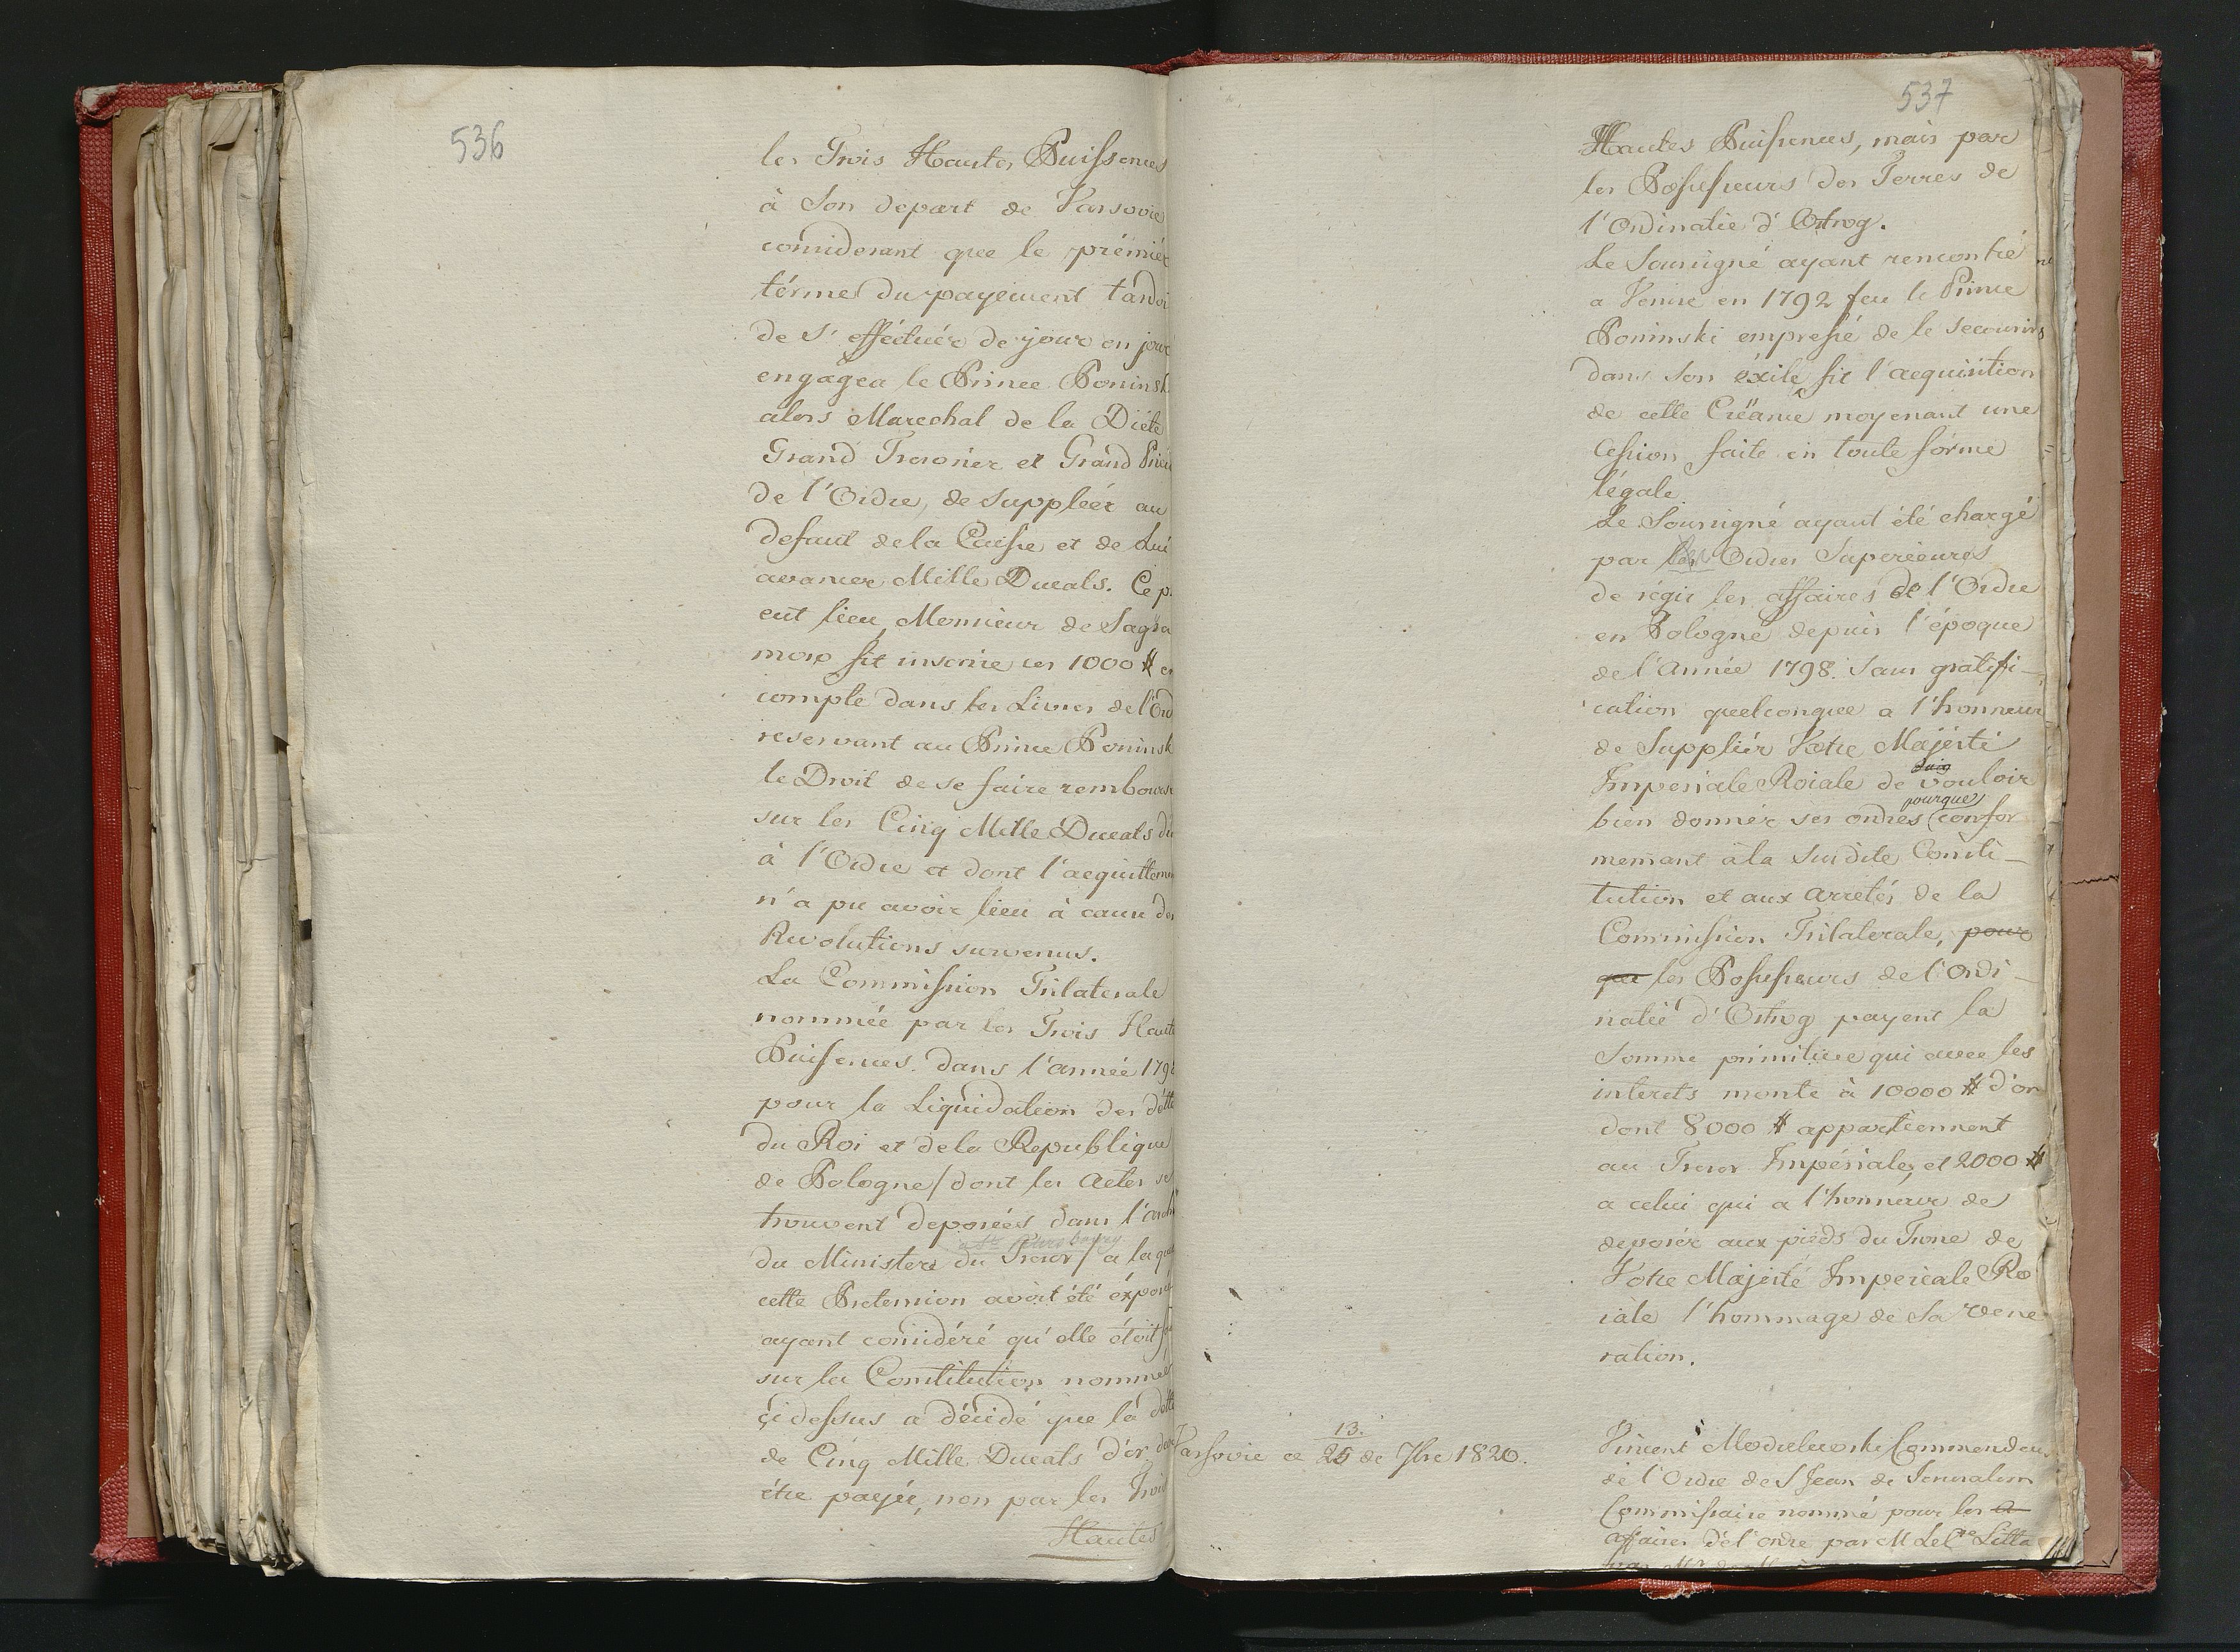 536
les Trois Hautes Puissences
à Son depart de Varsovie
considerant que le prémiér
térme du payement tardoi
de s'éfféctuér de jour en jour
engagea le Prince Poninsk
alors Marechal de la Diéte
Grand Tresorier et Grand Prieu
de l'Ordre, de suppleér au
defaut de la Caisse et de Lui
avancer Mille Ducats. Ce p
eut lieu, Monsieur de Sagra
moso fit inscrire ces 1000 # en
compte dans les Livres de l'Ord
reservant au Prince Poninsk
le Droit de se faire rembours
sur les Cinq Mille Ducats du
à l'Ordre et dont l'acquittemen
n'a pu avoir lieu à cause des
Revolutions survenus.
La Commission Trilaterale
nommée par les Trois Haute
Puissences dans l'année 179
pour la Liquidation des détte
du Roi et de la Republique
de Pologne / dont les Actes se
trouvent deposées dans l'Archi
a St. Petersbourg
du Ministere du Tresor / a la quel
cette Pretension avoit été éxposé
ayant considéré qu'elle étoit
sur la Constitution nommé
çi dessus a décidé que la dette
de Cinq Mille Ducats d'or doi
étre payée, non par les Trois
Hautes
537
Hautes Puissences, mais par
les Possesseurs des Terres de
l'Ordinatie d'Ostrog.
Le Soussigné ayant rencontré
a Venise en 1792 feu le Prince
Poninski empressé de le secourir
dans son éxile, fit l'acquisition
de cette Créance moyenant une
Cession faite en toute forme
légale.
Le Soussigné ayant été chargé
par les Ordres Superieures
de régir les affaires de l'Ordre
en Pologne depuis l'époque
de l'Année 1798. sans gratifi-
cation quelconque a l'honneur
de Suppliér Votre Majésté
Imperiale Roiale de vouloir
pourque
bien donnér ses ordres confor
mement à la susdite Consti-
tution et aux arretés de la
Commission Trilaterale, pour
que les Possesseurs de l'Ordi-
natie d'Ostrog payent la
Somme primitive qui avec les
interets monte à 10000 # d'or
dont 8000 # appartiennent
au Tresor Impériale, et 2000 #
a celui qui a l'honneur de
deposér aux pieds du Trone de
Votre Majésté Imperiale Ro
iale l'hommage de sa vene
ration.
13.
Varsovie ce 25 de 7bre 1820.
Vincent Modzelewski Commendeur
de l'Ordre de S Jean de Jerusalem
Commissaire nommé pour les a
affaires de l'ordre par M Le Cte Litta